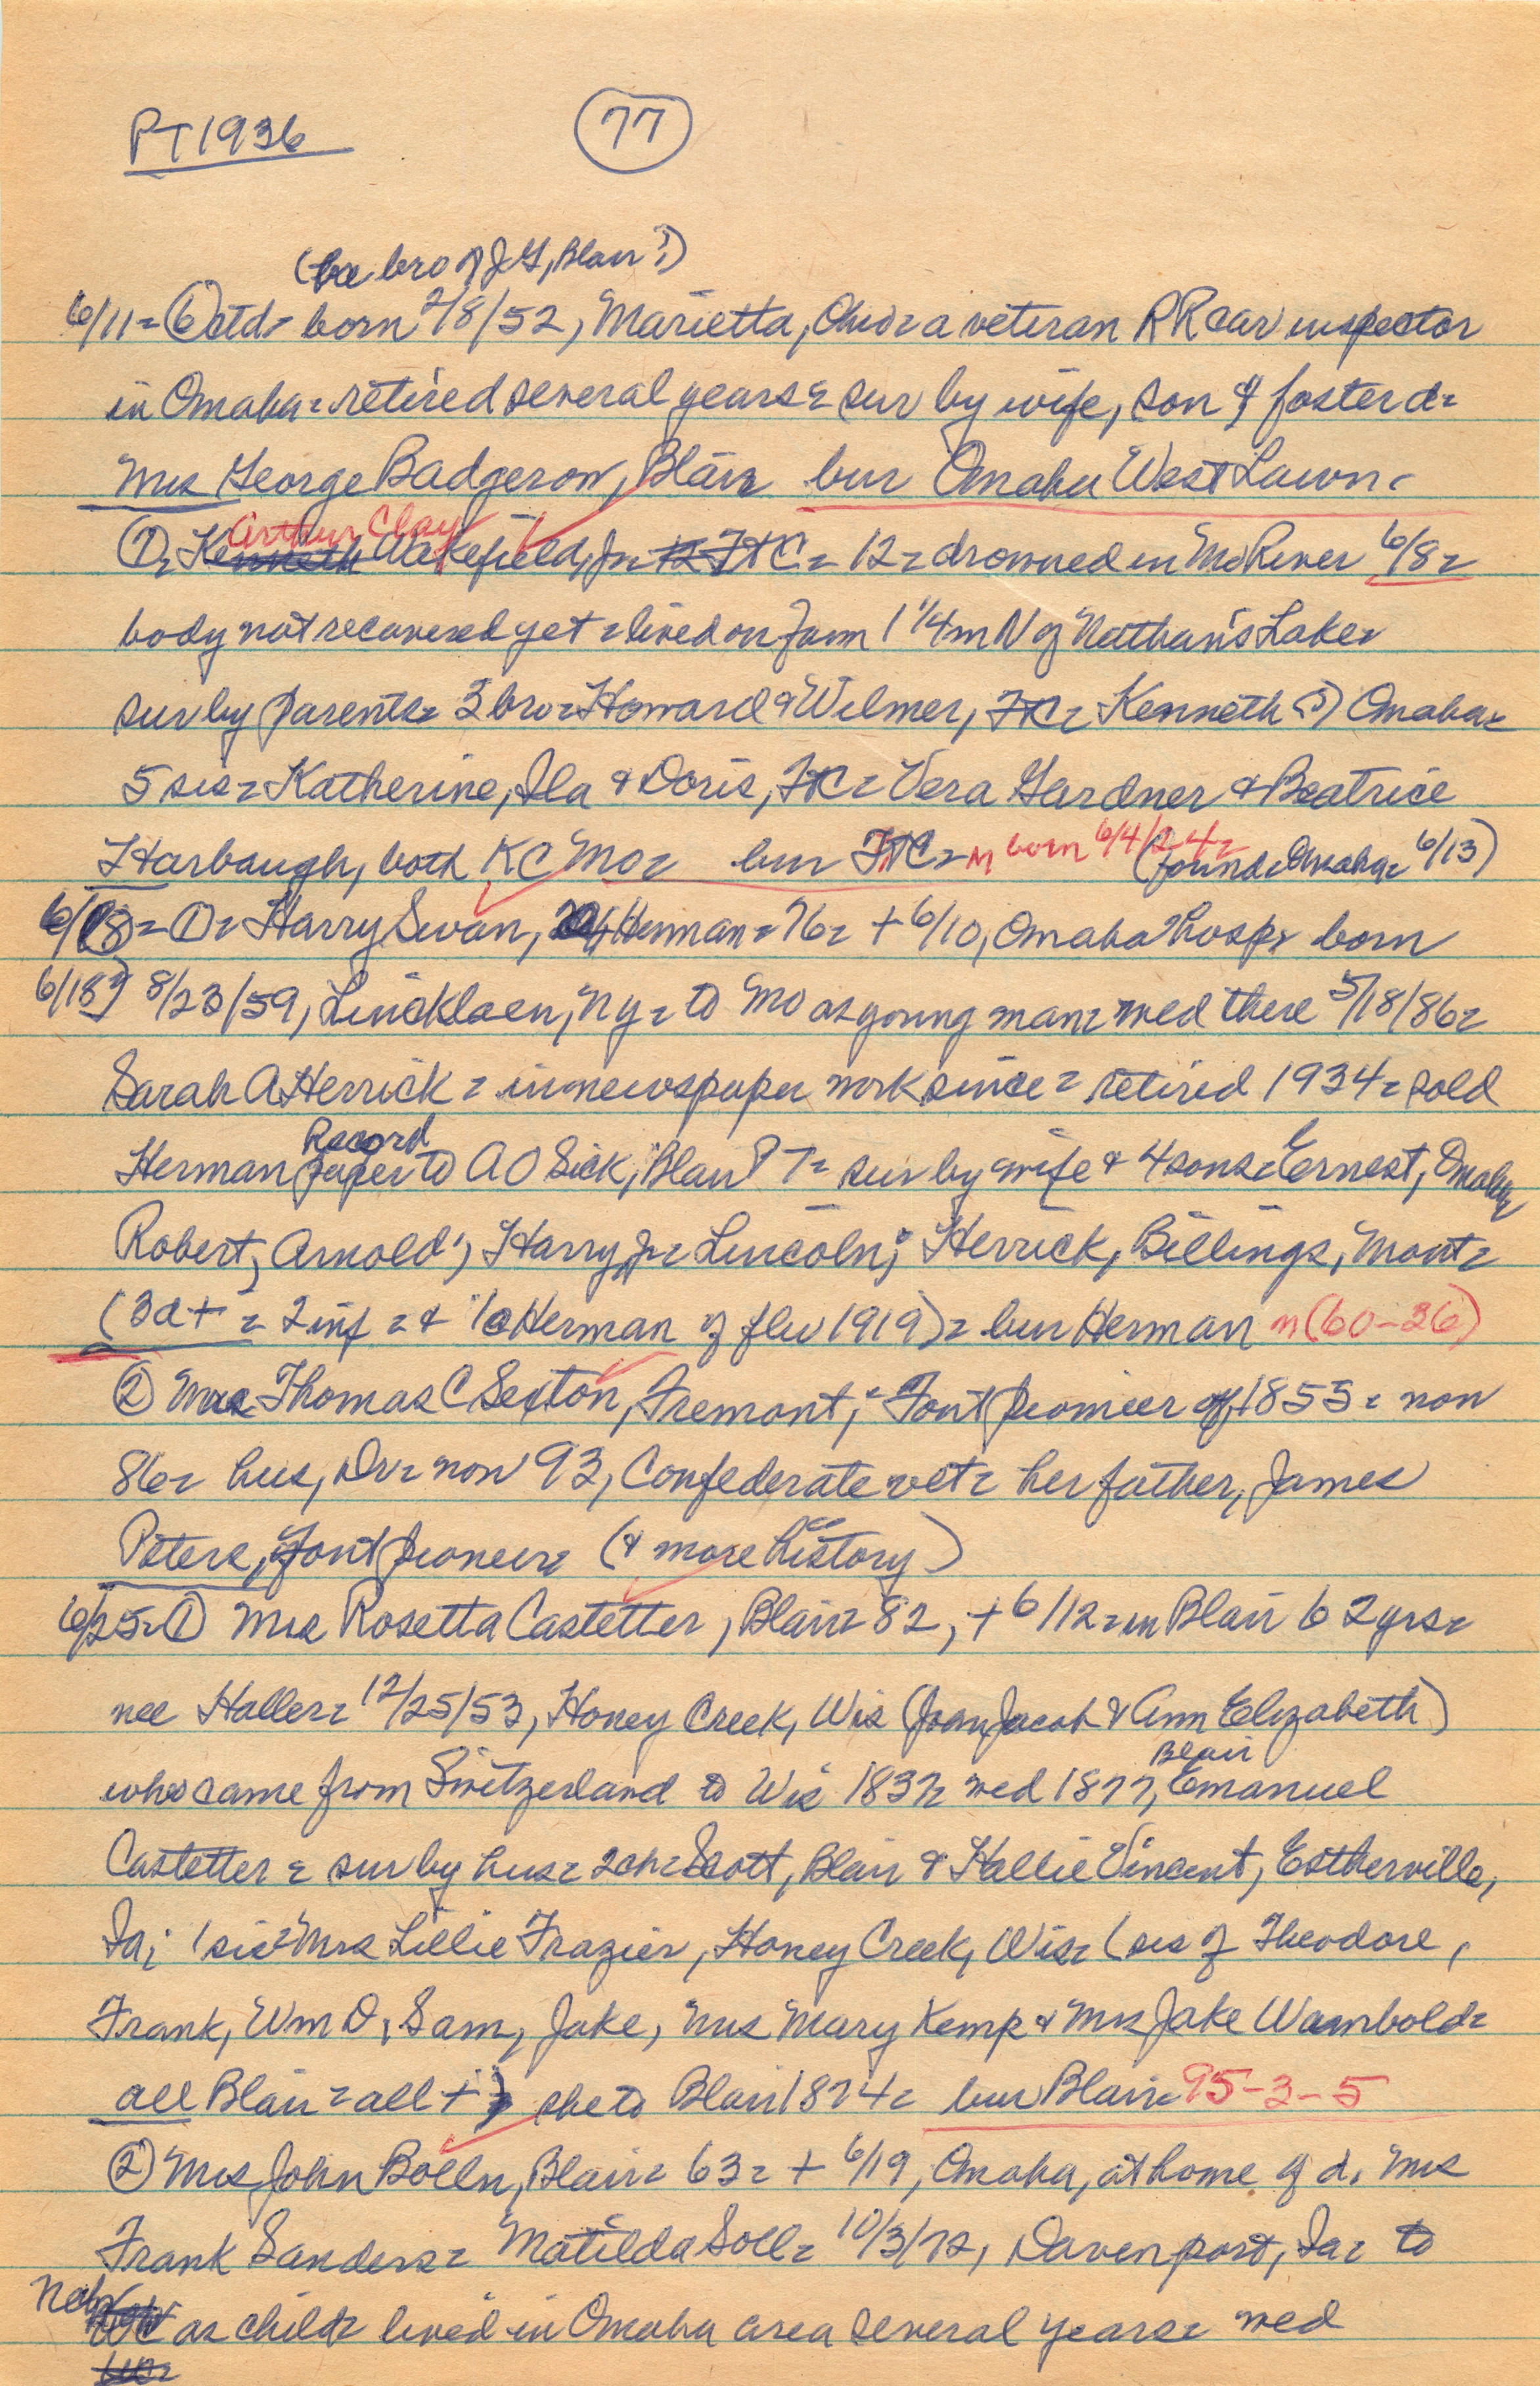 PT 1936
77
(be bro of J G, Blair?)
6/11 = ⑥ ctd = born 2/8/52, Marietta, Ohio = a veteran RR car inspector
in Omaha = retired several years = sur by wife, son & foster d =
Mrs George Badgerow, Blair = bur Omaha West Lawn =
Arthur Clay
① = Kenneth Wakefield, Jr = 12 = FtC = 12 = drowned in Mo River 6/8 =
body not recovered yet = lived on farm 1 1/4 m N of Nathan's Lake =
sur by parents = 3 bro = Howard & Wilmer, FtC = Kenneth (?) Omaha =
5 sis = Katherine, Ila & Doris, FtC = Vera Gardner & Beatrice
Harbaugh, both KC Mo = bur FtC = n born 6/4/24 = (found = Omaha = 6/13)
6/18 = ① = Harry Swan, Herman = 76 = + 6/10, Omaha hosp = born
6/18? 8/23/59, Lincklaen, Ny = to Mo as young man = wed there 5/18/86 =
Sarah A Herrick = in newspaper work since = retired 1934 = sold
Record
Herman paper to A O Sick, Blair PT = sur by wife & 4 sons = Ernest, Omaha
Robert, Arnold; Harry, Jr = Lincoln; Herrick, Billings, Mont =
(3d + = 2 inf = & 1 @ Herman of flu 1919) = bur Herman n (60-36)
② Mrs Thomas C Sexton, Fremont; = Font pioneer of 1855 = now
86 = hus, Dr = now 93, Confederate vet = her father, James
Peters, Font pioneer = (& more history)
6/25 = ① Mrs Rosetta Castetter, Blair = 82, + 6/12 = in Blair 62 yrs =
nee Haller = 12/25/53, Honey Creek, Wis (John Jacob & Ann Elizabeth)
Blair
who came from Switzerland to Wis 1837 = wed 1877, Emanuel
Castetter = sur by hus = 2 ch = Scott, Blair & Hallie Vincent, Estherville,
Ia; 1 sis = Mrs Lillie Frazier, Honey Creek, Wis = (sis of Theodore,
Frank, Wm D, Sam, Jake, Mrs Mary Kemp & Mrs Jake Wambold =
all Blair = all +) she to Blair 1874 = bur Blair = 95-3-5
② Mrs John Bolln, Blair = 63 = + 6/19, Omaha, at home of d, Mrs
Frank Sanders = Matilda Soll = 10/3/72, Davenport, Ia = to
Neb as child = lived in Omaha area several years = wed